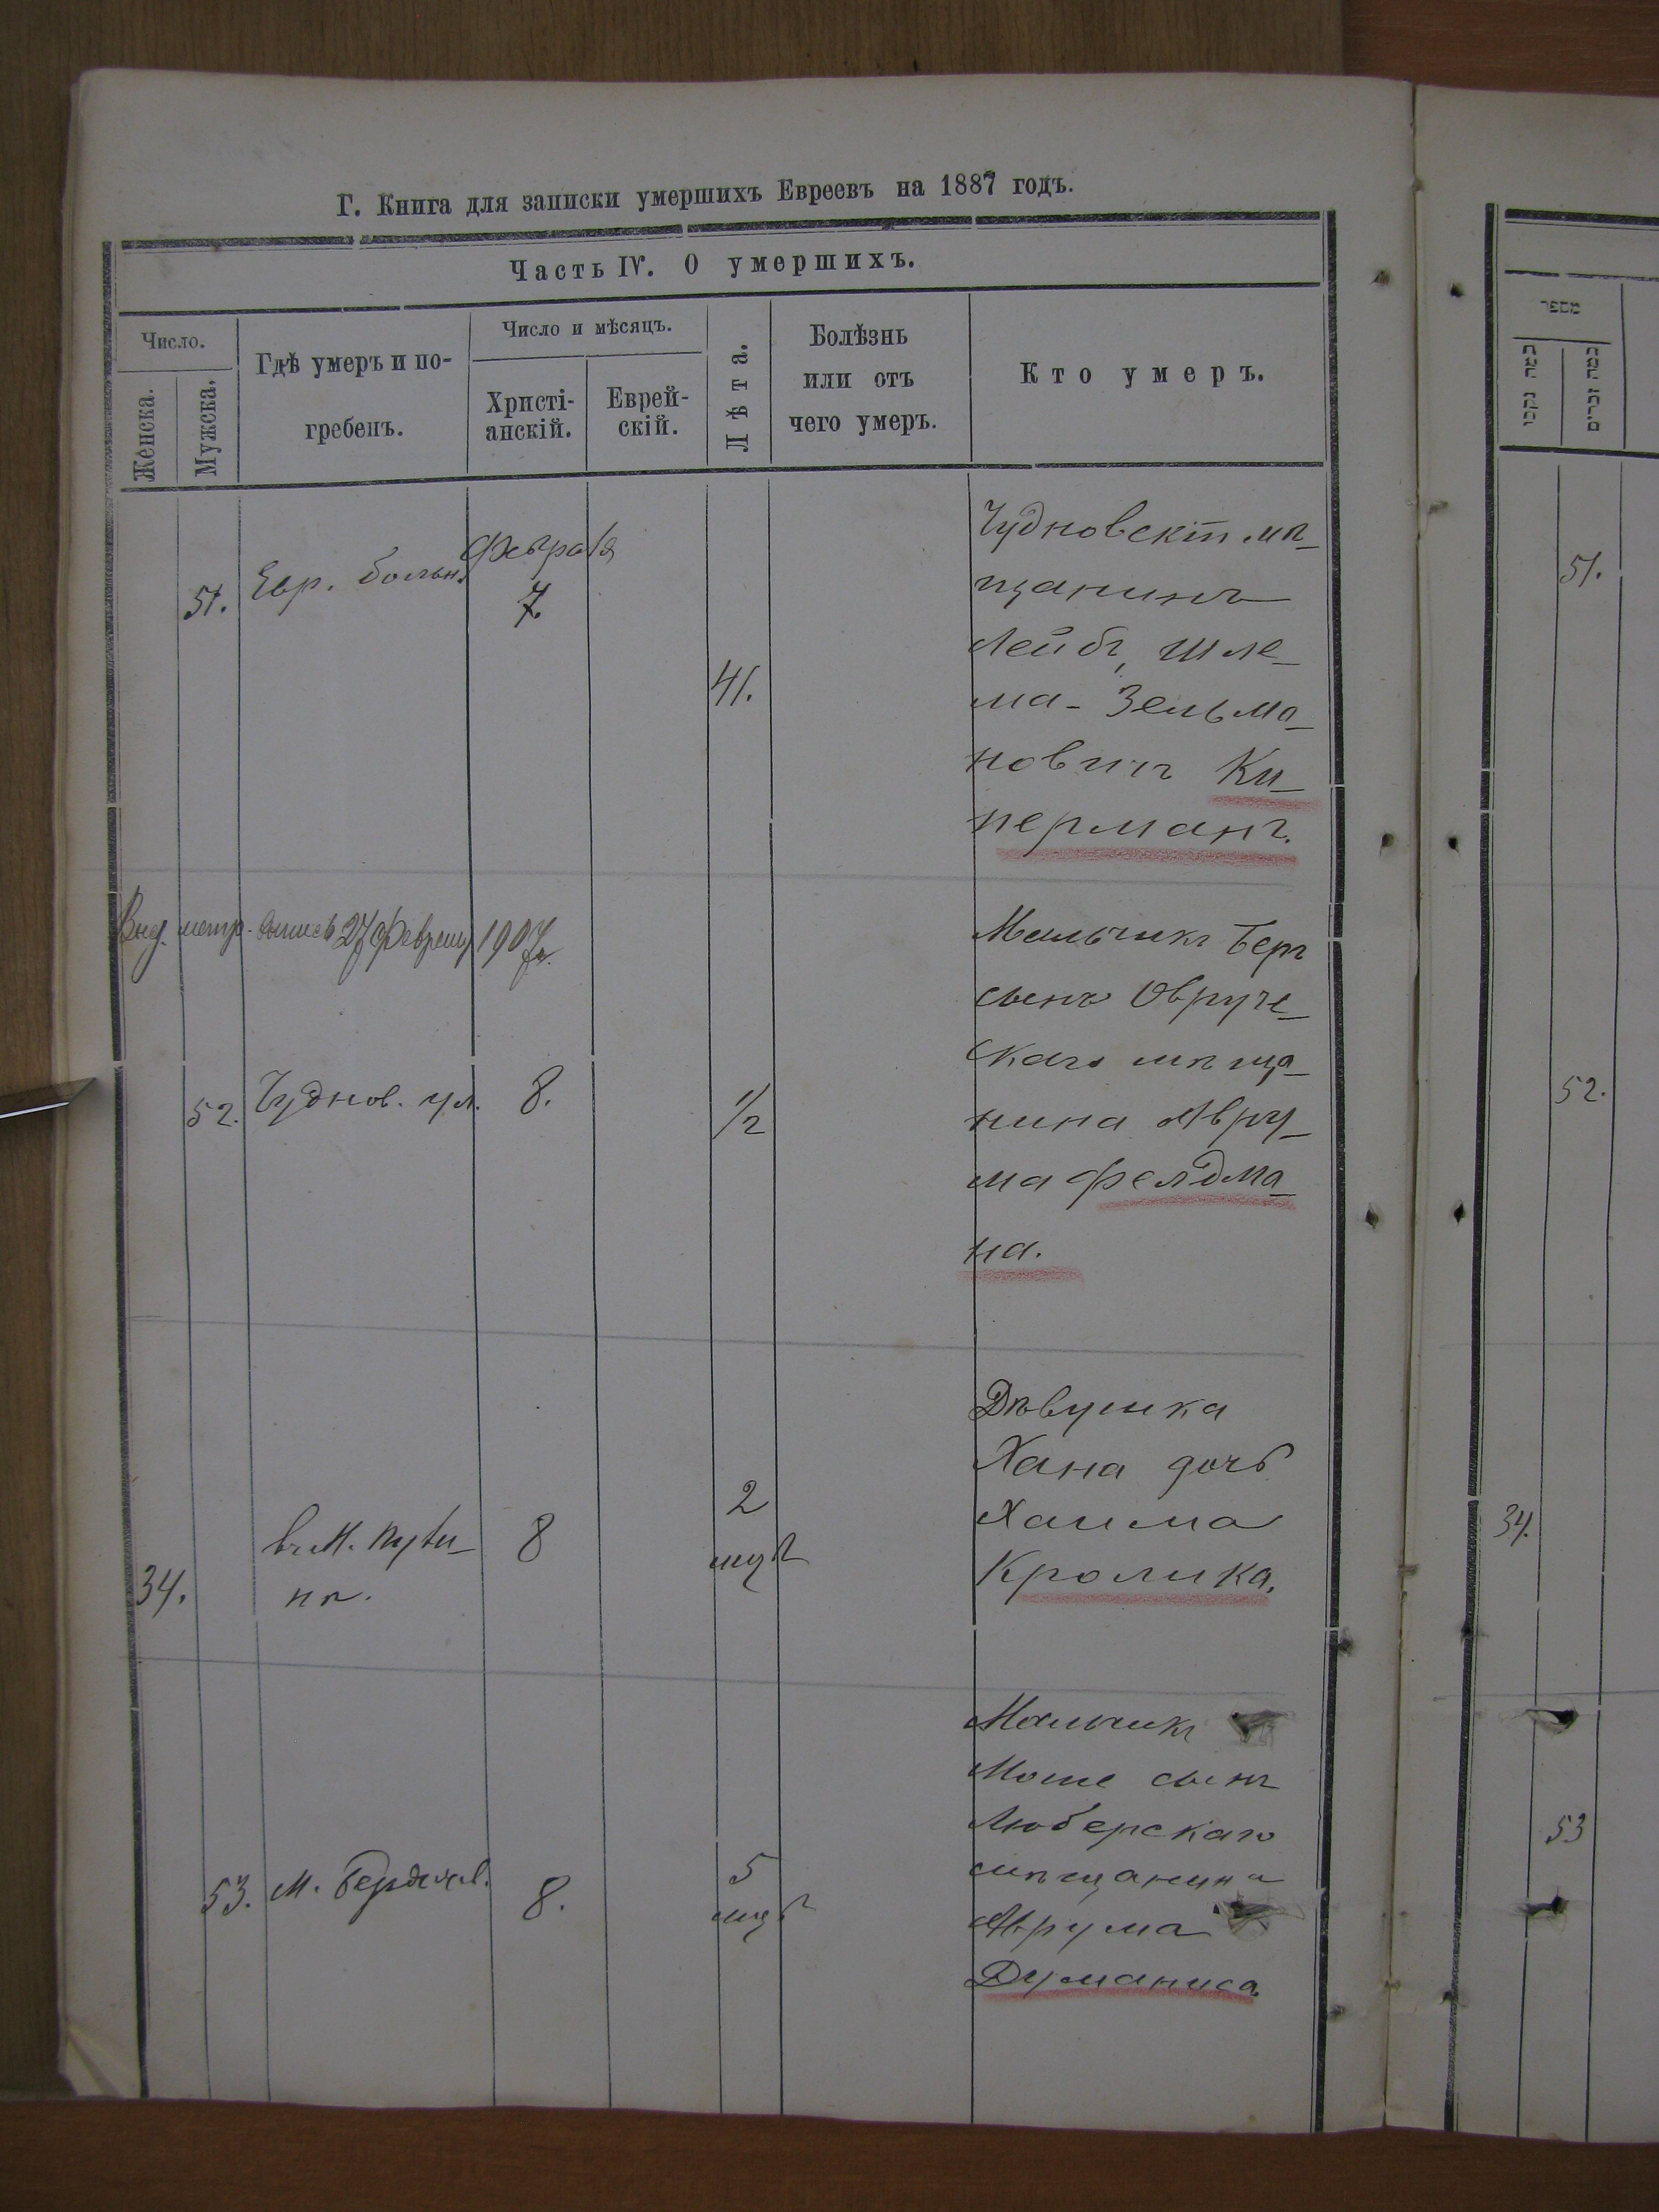 Г. Книга для записки умершихъ Евреевъ на 1887 годъ.
Часть IV. О умершихъ.
Число.
Женска.
Мужска.
Гдѣ умеръ и по-
гребенъ.
Число и мѣсяцъ.
Христі-
анскій.
Еврей-
скій.
Лѣта.
Болѣзнь
или отъ
чего умеръ.
Кто умеръ.
51.
Евр. больн.
Февраля
7.
41.
Чудновскій мѣ-
щанинъ
Лейбъ, Шле-
ма-Зельма-
новичъ Ки-
перманъ.
Выд. метр. выпись 27 февраля 1907 г.
52.
Чуднов. ул.
8.
1/2
Мальчикъ Беръ
сынъ Овруч-
скаго мѣща-
нина Авру-
ма Фелдма-
на.
34.
въ м.
8
2
Дѣвушка
Хана дочь
Хаима
Кролика.
53.
м. Бердичев.
8.
5
Мальчикъ
Моше сынъ
Люберскаго
мѣщанина
Аврума
Думаниса
מספר
כמה נקבו
כמה זכרים
51.
52.
34.
53